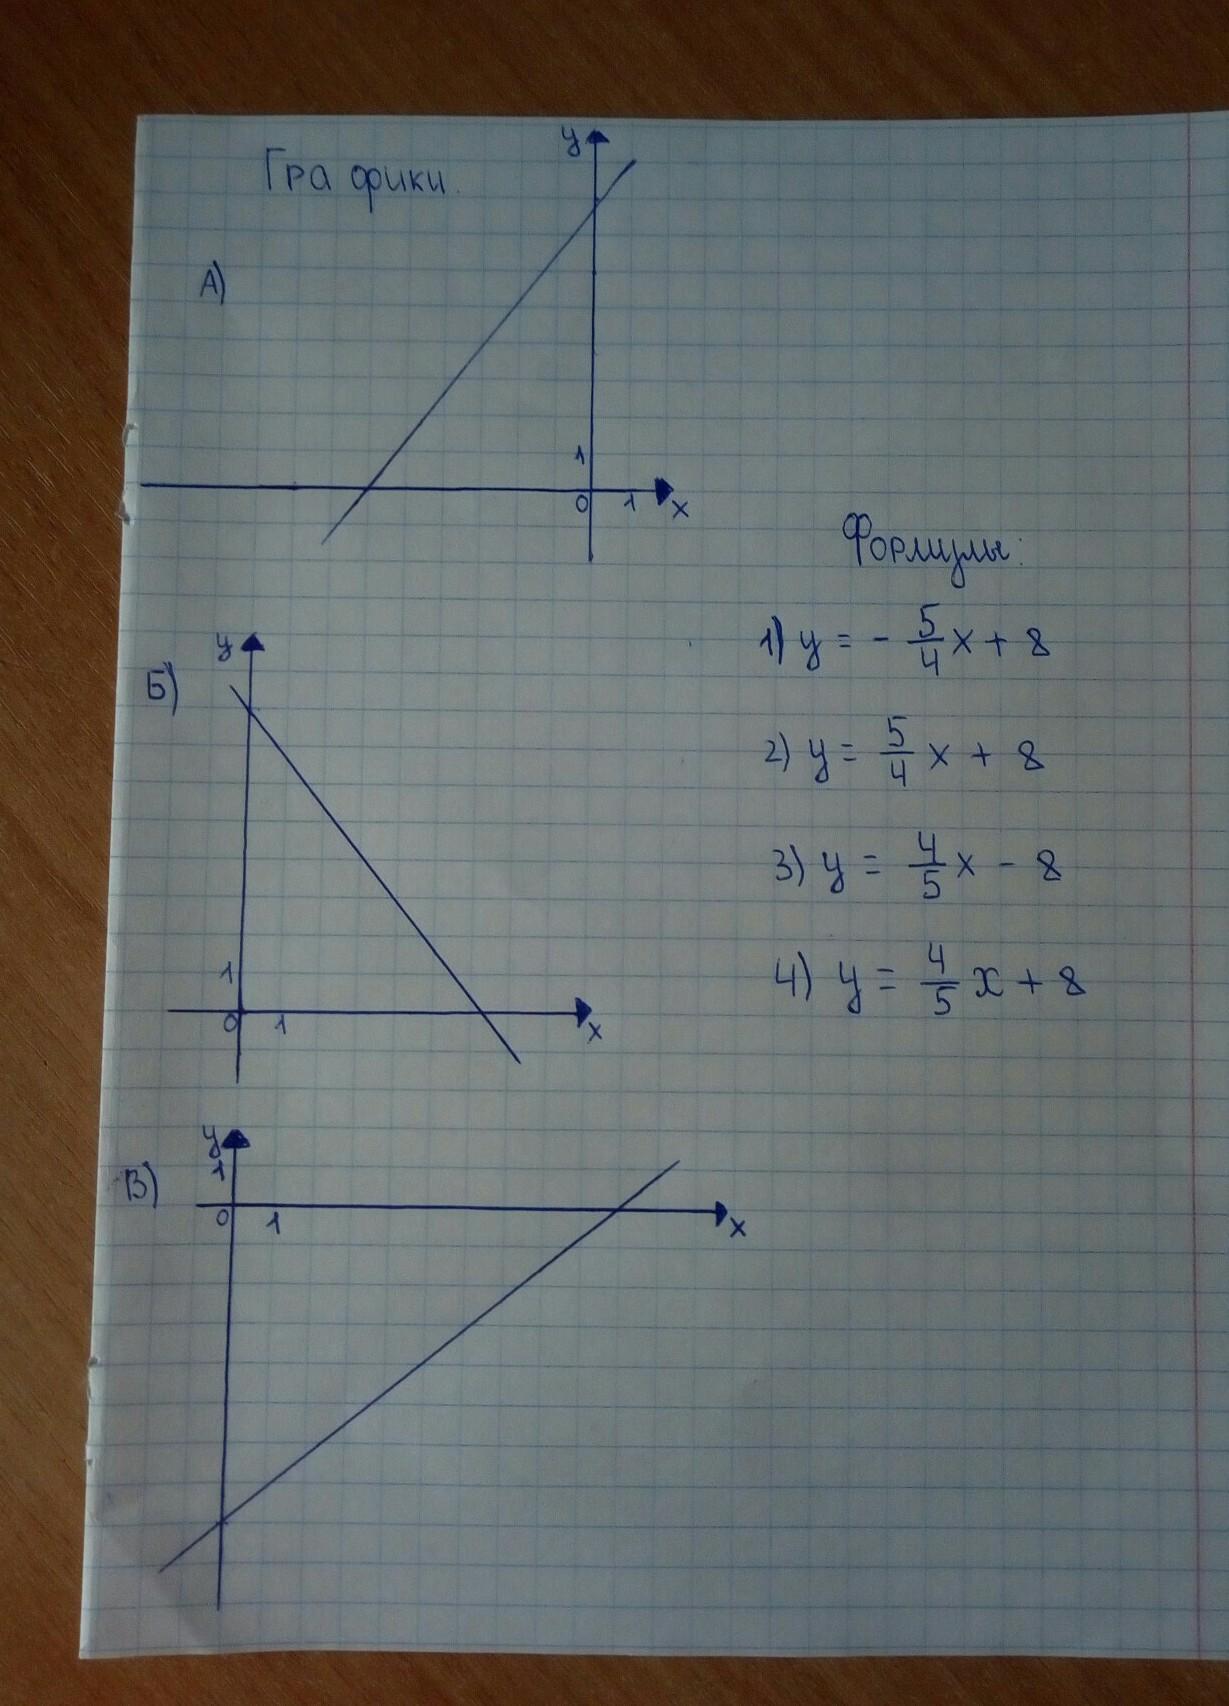 Графики.
А)
y
1
0 1 x
Формулы:
1) y = - 5/4 x + 8
2) y = 5/4 x + 8
3) y = 4/5 x - 8
4) y = 4/5 x + 8
Б)
y
1
0 1 x
В)
y
1
0 1 x